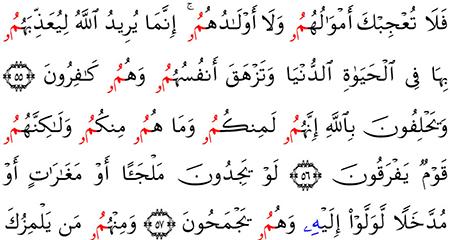 فَلَا تُعْجِبْكَ أَمْوَٰلُهُمُۥ وَلَا أَوْلَٰدُهُمُۥ ۚ إِنَّمَا يُرِيدُ ٱللَّهُ لِيُعَذِّبَهُمُۥ
بِهَا فِى ٱلْحَيَوٰةِ ٱلدُّنْيَا وَتَزْهَقَ أَنفُسُهُمُۥ وَهُمُۥ كَٰفِرُونَ ۝٥٥
وَيَحْلِفُونَ بِٱللَّهِ إِنَّهُمُۥ لَمِنكُمُۥ وَمَا هُمُۥ مِنكُمُۥ وَلَٰكِنَّهُمُۥ
قَوْمٌ يَفْرَقُونَ ۝٥٦ لَوْ يَجِدُونَ مَلْجَـًٔا أَوْ مَغَٰرَٰتٍ أَوْ
مُدَّخَلًا لَّوَلَّوْا۟ إِلَيْهِۦ وَهُمُۥ يَجْمَحُونَ ۝٥٧ وَمِنْهُمُۥ مَن يَلْمِزُكَ